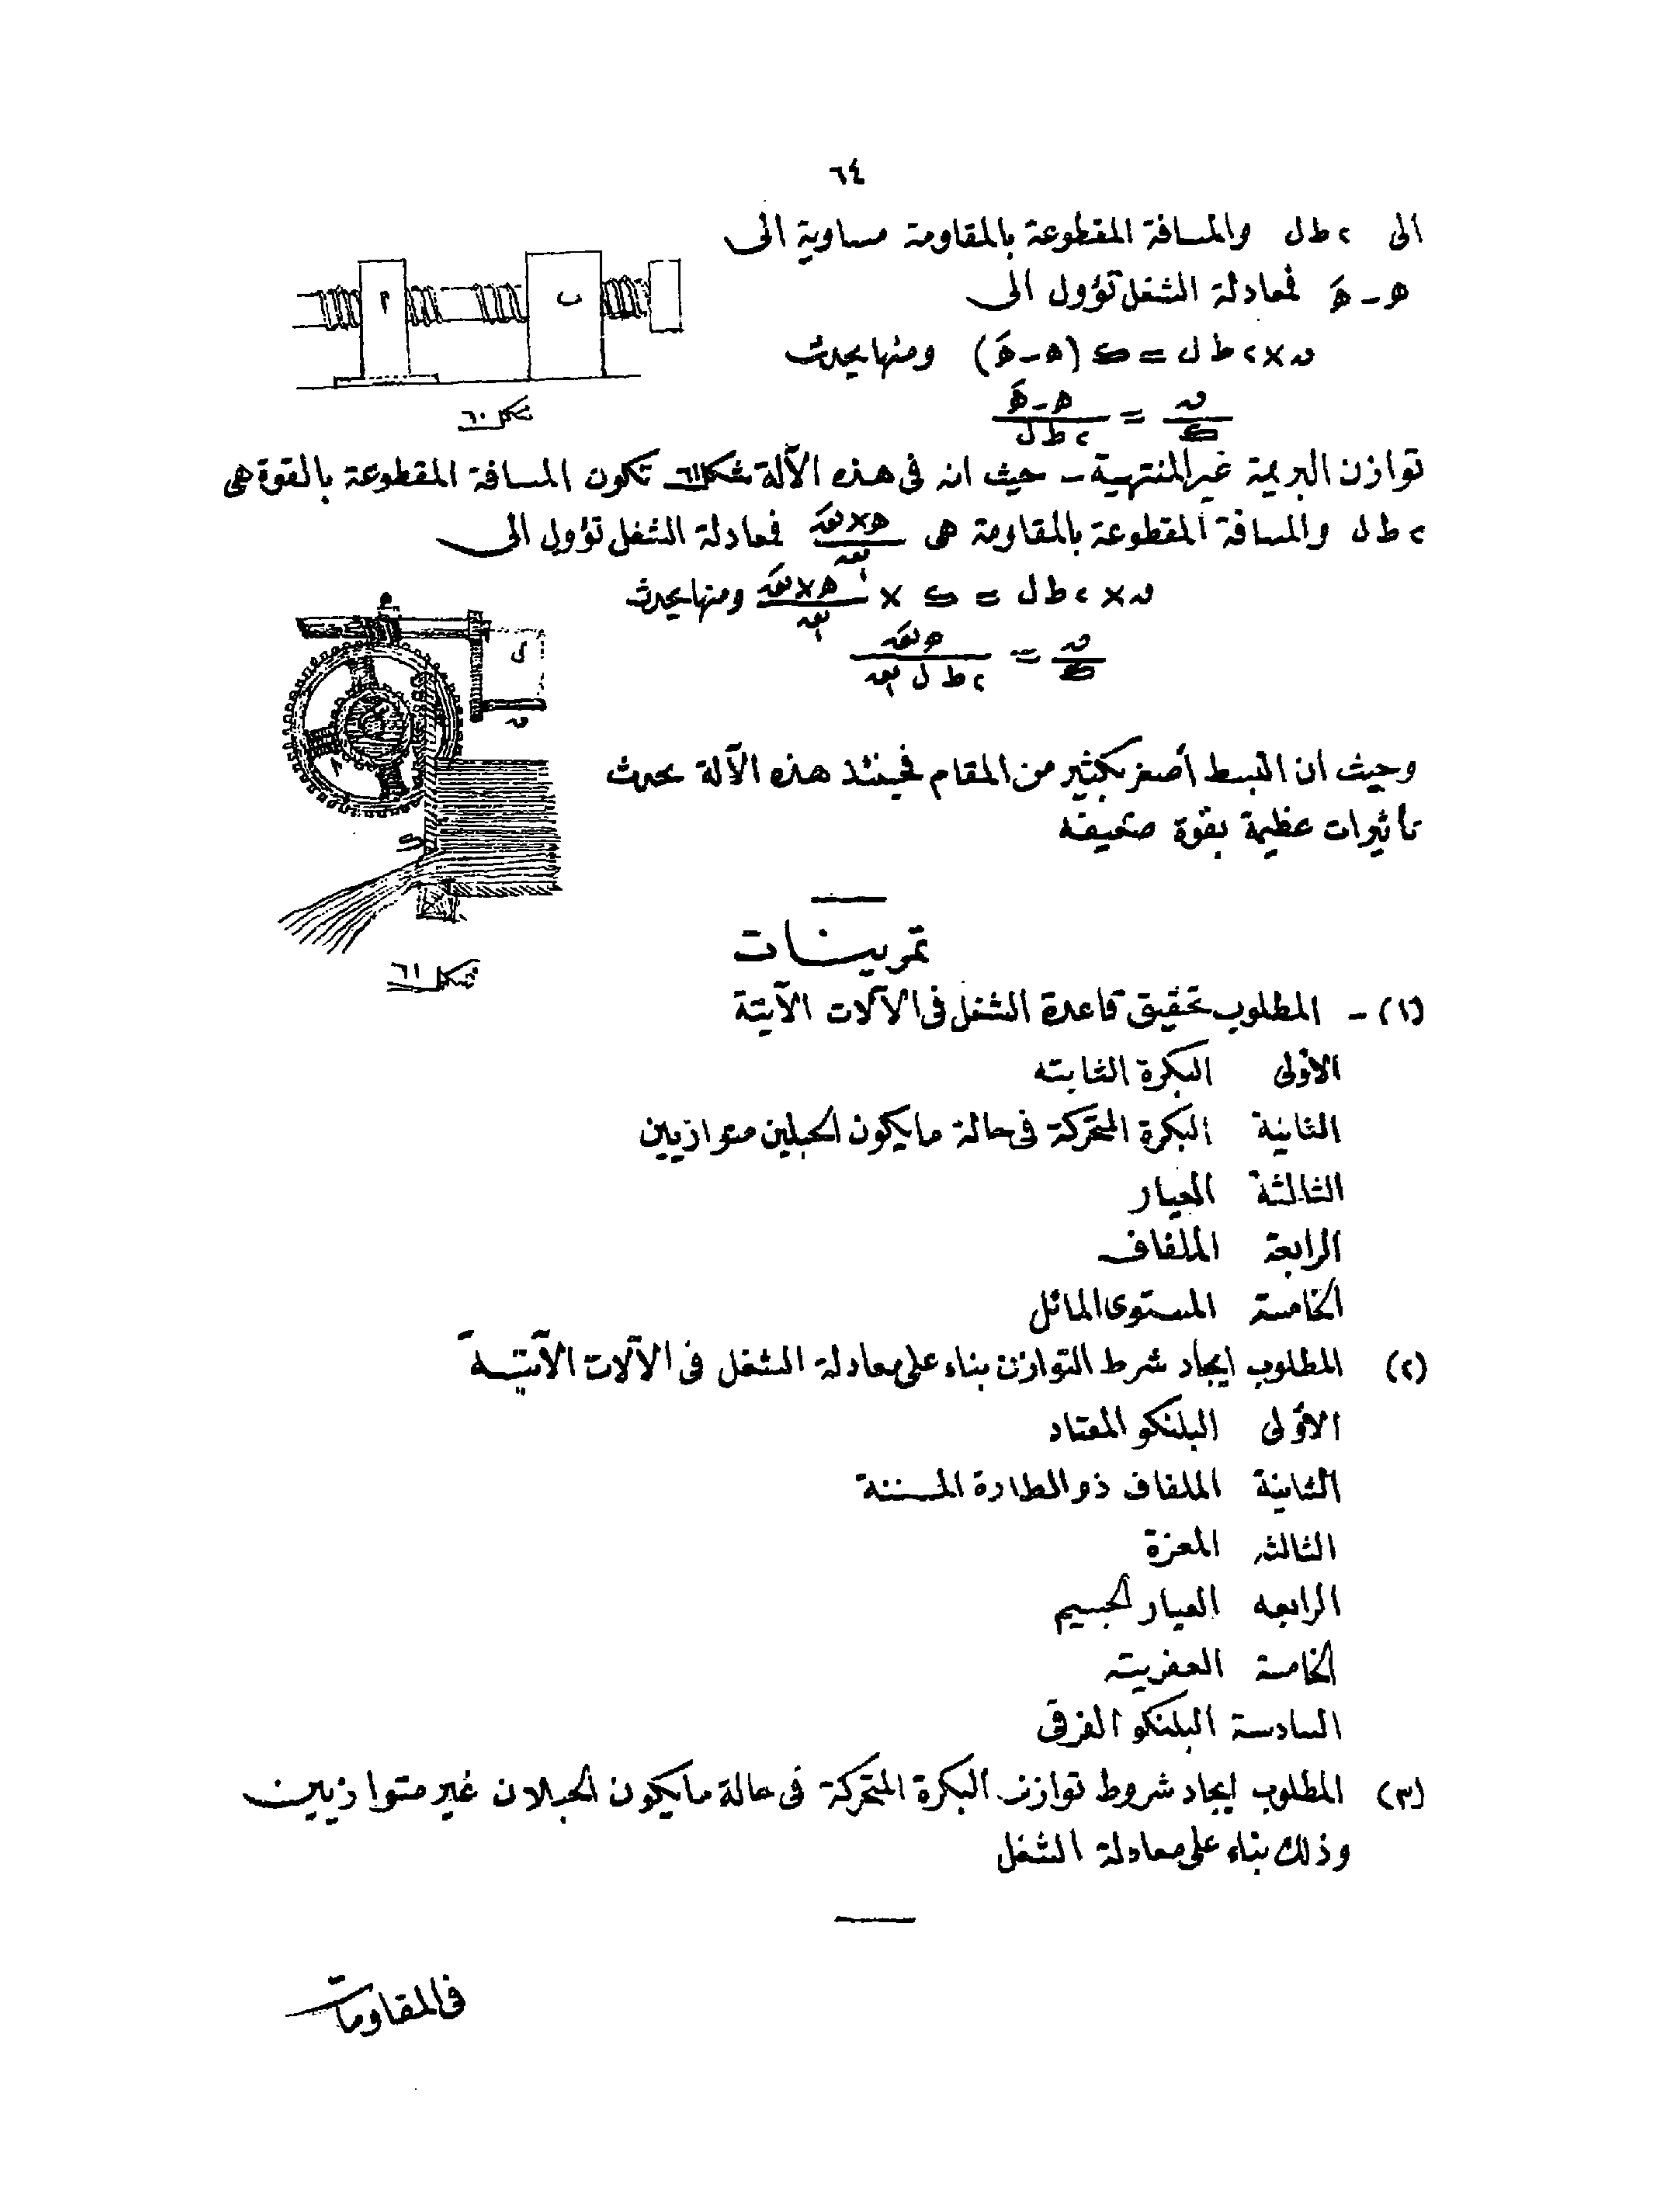 ٦٤
الى ٢ ط ل والمسافة المقطوعة بالمقاومة مساوية الى
ه - هَ فمعادلة الشغل تؤول الى
م
ب
شكل ٦٠
ق × ٢ ط ل = ك (ه - هَ) ومنها يحدث
ق/ك = (ه - هَ)/(٢ ط ل)
توازن البريمة غير المنتهية - حيث ان فى هذه الآلة شكل ٦١ تكون المسافة المقطوعة بالقوة هى
٢ ط ل والمسافة المقطوعة بالمقاومة هى فمعادلة الشغل تؤول الى
ق × ٢ ط ل = ك × ومنها يحدث
وحيث ان البسط أصغر بكثير من المقام فحينئذ هذه الآلة تحدث
تأثيرات عظيمة بقوة ضعيفه
شكل ٦١
تمرينات
(١) - المطلوب تحقيق قاعدة الشغل فى الآلات الآتية
الأولى البكرة الثابته
الثانية البكرة المتحركة فى حالة ما يكون الحبلين متوازيين
الثالثة العيار
الرابعة الملفاف
الخامسة المستوى المائل
(٢) المطلوب ايجاد شرط التوازن بناء على معادلة الشغل فى الآلات الآتية
الأولى البلنكو المعتاد
الثانية الملفاف ذو الطارة المسننة
الثالثه المعزة
الرابعه العيار الجسيم
الخامسة العفريته
السادسة البلنكو الفرقى
(٣) المطلوب ايجاد شروط توازن البكرة المتحركة فى حالة ما يكون الحبلان غير متوازيين
وذلك بناء على معادلة الشغل
فى المقاومات